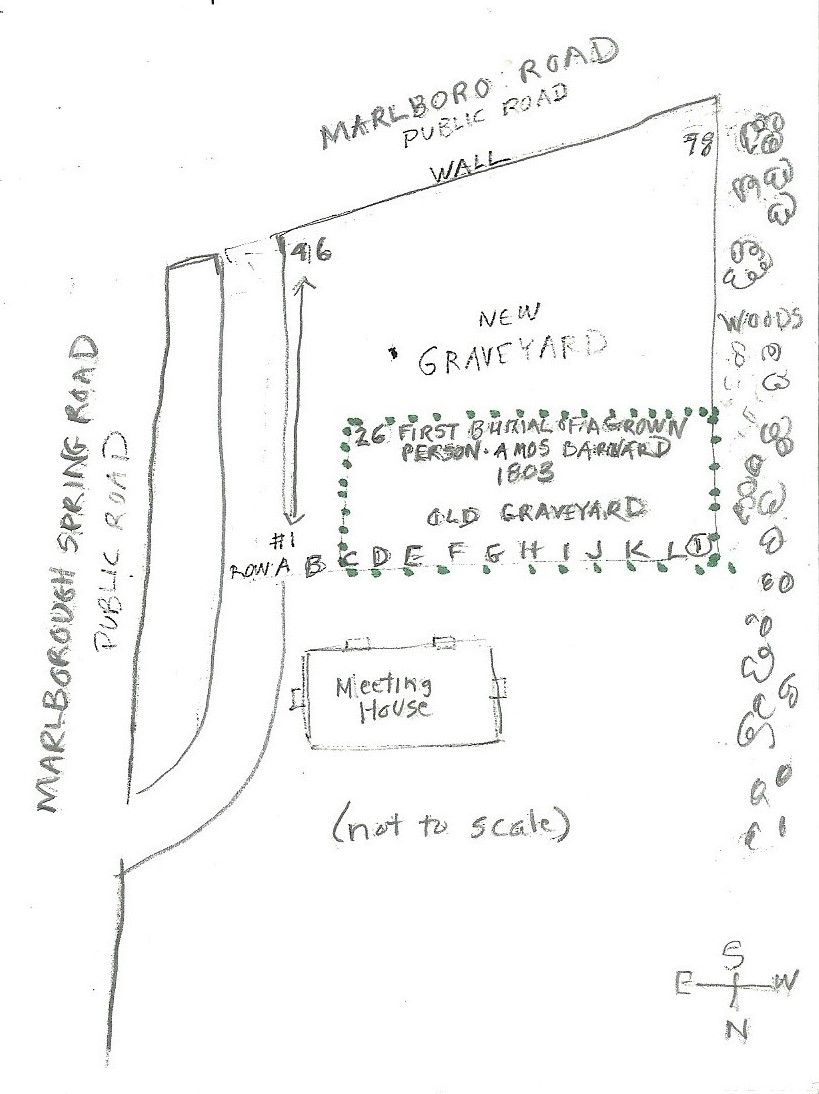 MARLBORO ROAD
PUBLIC ROAD
WALL
98
46
WOODS
NEW
GRAVEYARD
26 FIRST BURIAL OF A GROWN
PERSON. AMOS BARNARD
1803
OLD GRAVEYARD
#1
ROW A B C D E F G H I J K L 1
MARLBOROUGH SPRING ROAD
PUBLIC ROAD
Meeting
House
(not to scale)
S
E W
N